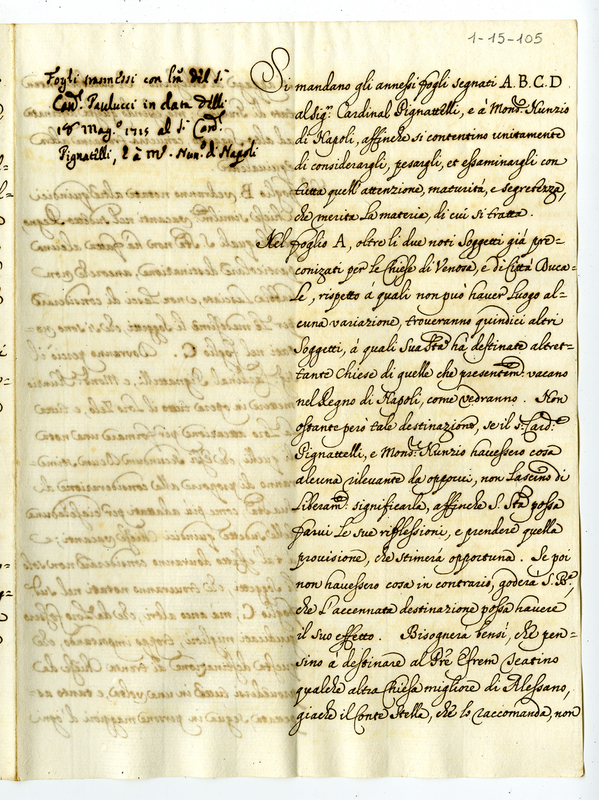 1-15-105
Fogli trasmessi con l'ra del S.r
Card. Paulucci in data delli
18 Mag.o 1715 al S.r Card.l
Pignatelli, e à M.r Nun.o di Napoli
Si mandano gli annessi fogli segnati A.B.C.D
al Sig.r Cardinal Pignattelli, e à Mons.r Nunzio
di Napoli, affinche si contentino unitamente
di considerargli, pesargli, et essaminargli con
tutta quell'attenzione, maturità, e segretezza,
che merita la materia, di cui si tratta.
Nel foglio A, oltre li due noti Soggetti già pre=
conizati per le Chiese di Venosa, e di Città Duca=
le, rispetto à quali non può haver luogo al=
cuna variazione, troveranno quindici altri
Soggetti, à quali Sua S.tà hà destinate altret=
tante Chiese di quelle che presentem.te vacano
nel Regno di Napoli, come vedranno. Non
ostante però tale destinazione, se il S.r Card.l
Pignattelli, e Mons.r Nunzio havessero cosa
alcuna rilevante da opporvi, non lascino di
liberam.te significarla, affinche S. S.tà possa
farvi le sue riflessioni, e prendere quella
provisione, che stimerà opportuna. Se poi
non havessero cosa in contrario, goderà S. B.ne,
che l'accennata destinazione possa havere
il suo effetto. Bisognerà bensì, che pen=
sino à destinare al P.re Efrem Teatino
qualche altra Chiesa migliore di Alessano,
giache il Conte Stella, che lo raccomanda, non